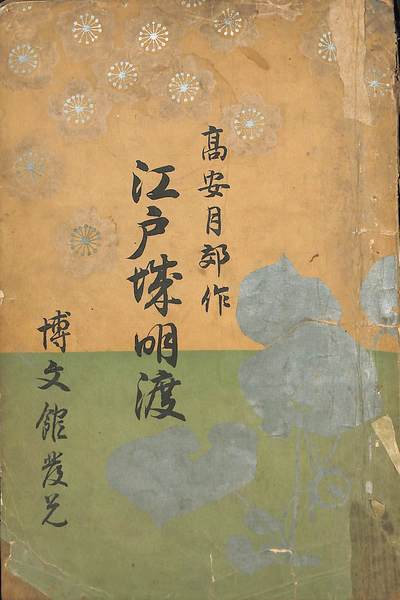 髙安月郊作
江戸城明渡
博文館發兌